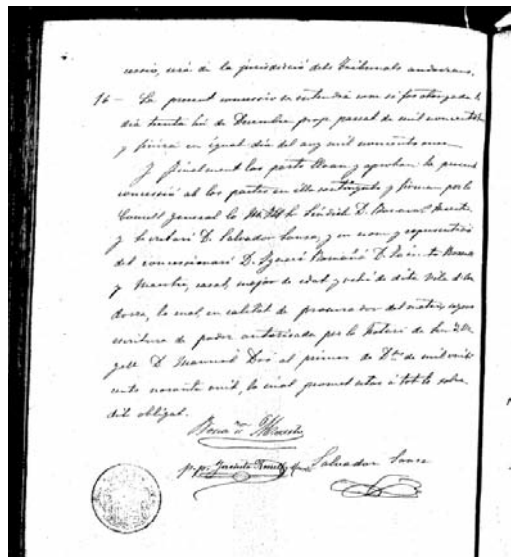 cessió, será de la jurisdicció dels Tribunals andorrans.
16 — La present concessió se entendrá com si fos otorgada lo
dia trenta hu de Desembre prop. passat de mil noucents
y finirá en igual dia del any mil noucents
Y finalment las parts lloan y aproban la present
concessió ab los pactes en ella continguts y firman per lo
Consell General lo M. Ill. Sr. Síndich D. Bonaventura
y Secretari D. Salvador Sansa, y en nom y representació
del concessionari D. Ignaci D. Jacinto
y casat, major de edat y vehí de dita Vila d'An
dorra, lo cual, en calitat de procurador del mateix segons
escritura de poder autorisada per lo Notari de Seu d'Ur
gell D. Manuel al primer de D.bre de mil vuit
cents noranta vuit, lo cual promet estar á tot lo sobre
dit obligat.
Bona.ra
p. p. Jacinto
Salvador Sansa